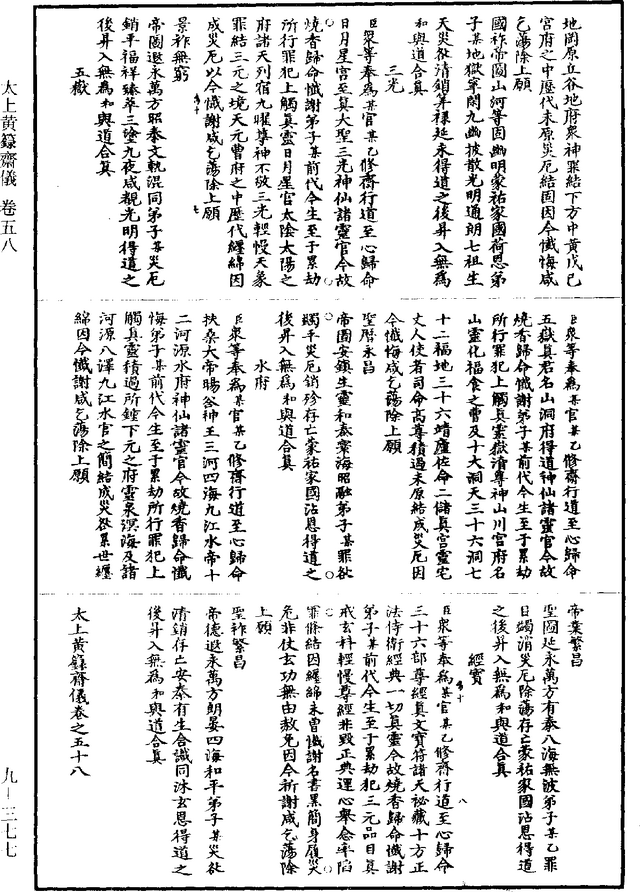 太上黄籙齋儀 卷五八
九-三七七
地岡原丘谷地府衆神罪結下方中黄戊己
宫府之中歷代未原災厄結固因今懺悔咸
乞蕩除上願
國祚帝圖山河等固幽明蒙祐家國荷恩第
子某地獄寧閑九幽披散光明通朗七祖生
天災欲清銷筭禄延永得道之後昇入無爲
和與道合真
三光
臣衆等奉爲某官某乙修齋行道至心歸命
日月星宫至真大聖三光神仙諸靈官今故
燒香歸命懺謝弟子某前代今生至于累劫
所行罪犯上觸真靈日月星官太陰太陽之
府諸天列宿九曜尊神不敬三光輕慢天象
罪結三元之境天元曹府之中歷代纏綿因
成災厄以今懺謝咸乞蕩除上願
景祚無窮
帝圖遐永萬方昭泰文軌混同弟子某災厄
銷平福祥臻萃三塗九夜咸覩光明得道之
後昇入無爲和與道合真
五嶽
臣衆等奉爲某官某乙修齋行道至心歸命
五嶽真君名山洞府得道神仙諸靈官今故
燒香歸命懺謝弟子某前代今生至于累劫
所行罪犯上觸真靈嶽瀆尊神山川宫府名
山靈化福食之曹及十大洞天三十六洞七
十二福地三十六靖廬佐命二儲真宫靈宅
丈人使者司命高尊積過未原結成災厄因
今懺悔咸乞蕩除上願
聖曆永昌
帝圖安鎮生靈和泰寰海昭融弟子某罪欲
蠲平災厄銷殄存亡蒙祐家國沾恩得道之
後昇入無爲和與道合真
水府
臣衆等奉爲某官某乙修齋行道至心歸命
扶桑大帝暘谷神王三河四海九江水帝十
二河源水府神仙諸靈官今故燒香歸命懺
悔弟子某前代今生至于累劫所行罪犯上
觸真靈積過所鍾下元之府靈泉溟海及諸
河源八澤九江水官之簡結成災欲累世纏
綿因今懺謝咸乞蕩除上願
帝葉繁昌
聖圖延永萬方有泰八海無波弟子某乙罪
目蠲消災厄除蕩存亡蒙祐家國沾恩得道
之後昇入無爲和與道合真
經寶
臣衆等奉爲某官某乙修齋行道至心歸命
三十六部尊經真文寶符諸天祕藏十方正
法侍衛經典一切真靈今故燒香歸命懺謝
弟子某前代今生至于累劫犯三元品目真
戒玄科輕慢尊經非毀正典運心舉念率陷
罪條結因纏綿未曾懺謝名書黑簡身履災
危非仗玄功無由赦免因今祈謝咸乞蕩除
上願
聖祚繁昌
帝德遐永萬方朗晏四海和平弟子某災欲
清銷存亡安泰有生合識同沐玄恩得道之
後昇入無爲和與道合真
太上黄籙齋儀卷之五十八